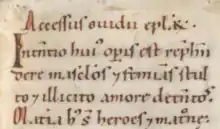 Accessus ouidii epl̃aꝝ.
Intentio hui' operis est rep̃hen
dere masc̃los ⁊ feminas stul
to ⁊ illicito amore detentos.
Materia h' s̃ heroes ⁊ matrone.